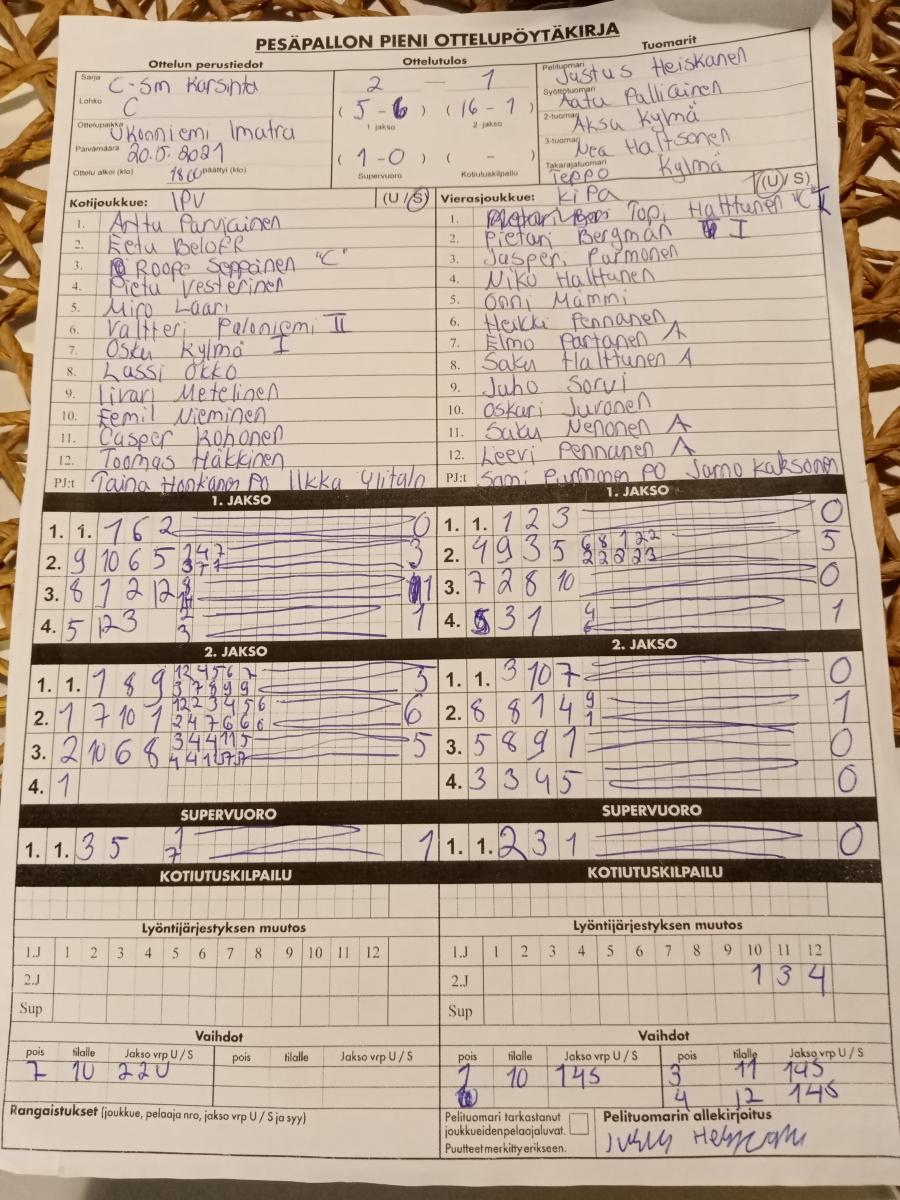 PESÄPALLON PIENI OTTELUPÖYTÄKIRJA
Ottelun perustiedot
Sarja C-Sm Karsinta
Lohko C
Ottelupaikka Ukonniemi Imatra
Päivämäärä 20.5.2021
Ottelu alkoi (klo) 1800 päättyi (klo)
Ottelutulos
2 — 1
(5-6) (16-1)
1. jakso 2. jakso
(1-0) ( - )
Supervuoro Kotiutuskilpailu
Tuomarit
Pelituomari Justus Heiskanen
Syöttötuomari Aatu Palliainen
2-tuomari Aksu Kylmä
3-tuomari Nea Haltsonen
Takarajatuomari Teppo Kylmä
Kotijoukkue: IPV (U/S)
1. Arttu Parviainen
2. Eetu Beloff
3. Roope Seppänen "C"
4. Pietu Vesterinen
5. Miro Laari
6. Valtteri Paloniemi II
7. Osku Kylmä I
8. Lassi Okko
9. Iivari Metelinen
10. Eemil Nieminen
11. Casper Kohonen
12. Toomas Häkkinen
PJ:t Taina Honkanen PO Ilkka Ylitalo
Vierasjoukkue: KiPa (U/S)
1. Topi Halttunen "C" II
2. Pietari Bergman I
3. Jasperi Purmonen
4. Niko Halttunen
5. Onni Mämmi
6. Heikki Pennanen
7. Elmo Partanen A
8. Saku Halttunen A
9. Juho Sorvi
10. Oskari Juronen
11. Saku Nenonen A
12. Leevi Pennanen A
PJ:t Sami Purmonen PO Jarno Kaksonen
1. JAKSO
1. 1. 1 6 2 0
2. 9 10 6 5 3
3. 8 1 2 12 1
4. 5 12 3 1
1. JAKSO
1. 1. 1 2 3 0
2. 4 9 3 5 6 8 1 2 2 5
2 2 2 2 3
3. 7 2 8 10 0
4. 3 1 1
2. JAKSO
1. 1. 1 8 9 12 4 5 6 7 5
3 7 8 9 9
2. 1 7 10 1 12 2 3 4 5 6 6
2 4 7 6 6 6
3. 2 10 6 8 3 4 4 11 5 5
4. 1
2. JAKSO
1. 1. 3 10 7 0
2. 8 8 1 4 9 1
1
3. 5 8 9 1 0
4. 3 3 4 5 0
SUPERVUORO
1. 1. 3 5 1 1
7
SUPERVUORO
1. 1. 2 3 1 0
KOTIUTUSKILPAILU
KOTIUTUSKILPAILU
Lyöntijärjestyksen muutos
1.J 1 2 3 4 5 6 7 8 9 10 11 12
2.J
Sup
Lyöntijärjestyksen muutos
1.J 1 2 3 4 5 6 7 8 9 10 11 12
2.J 1 3 4
Sup
Vaihdot
pois tilalle Jakso vrp U / S pois tilalle Jakso vrp U / S
7 10 22U
Vaihdot
pois tilalle Jakso vrp U / S pois tilalle Jakso vrp U / S
1 10 14S 3 11 14S
4 12 14S
Rangaistukset (joukkue, pelaaja nro, jakso vrp U / S ja syy)
Pelituomari tarkastanut
joukkueiden pelaajaluvat.
Puutteet merkitty erikseen.
Pelituomarin allekirjoitus